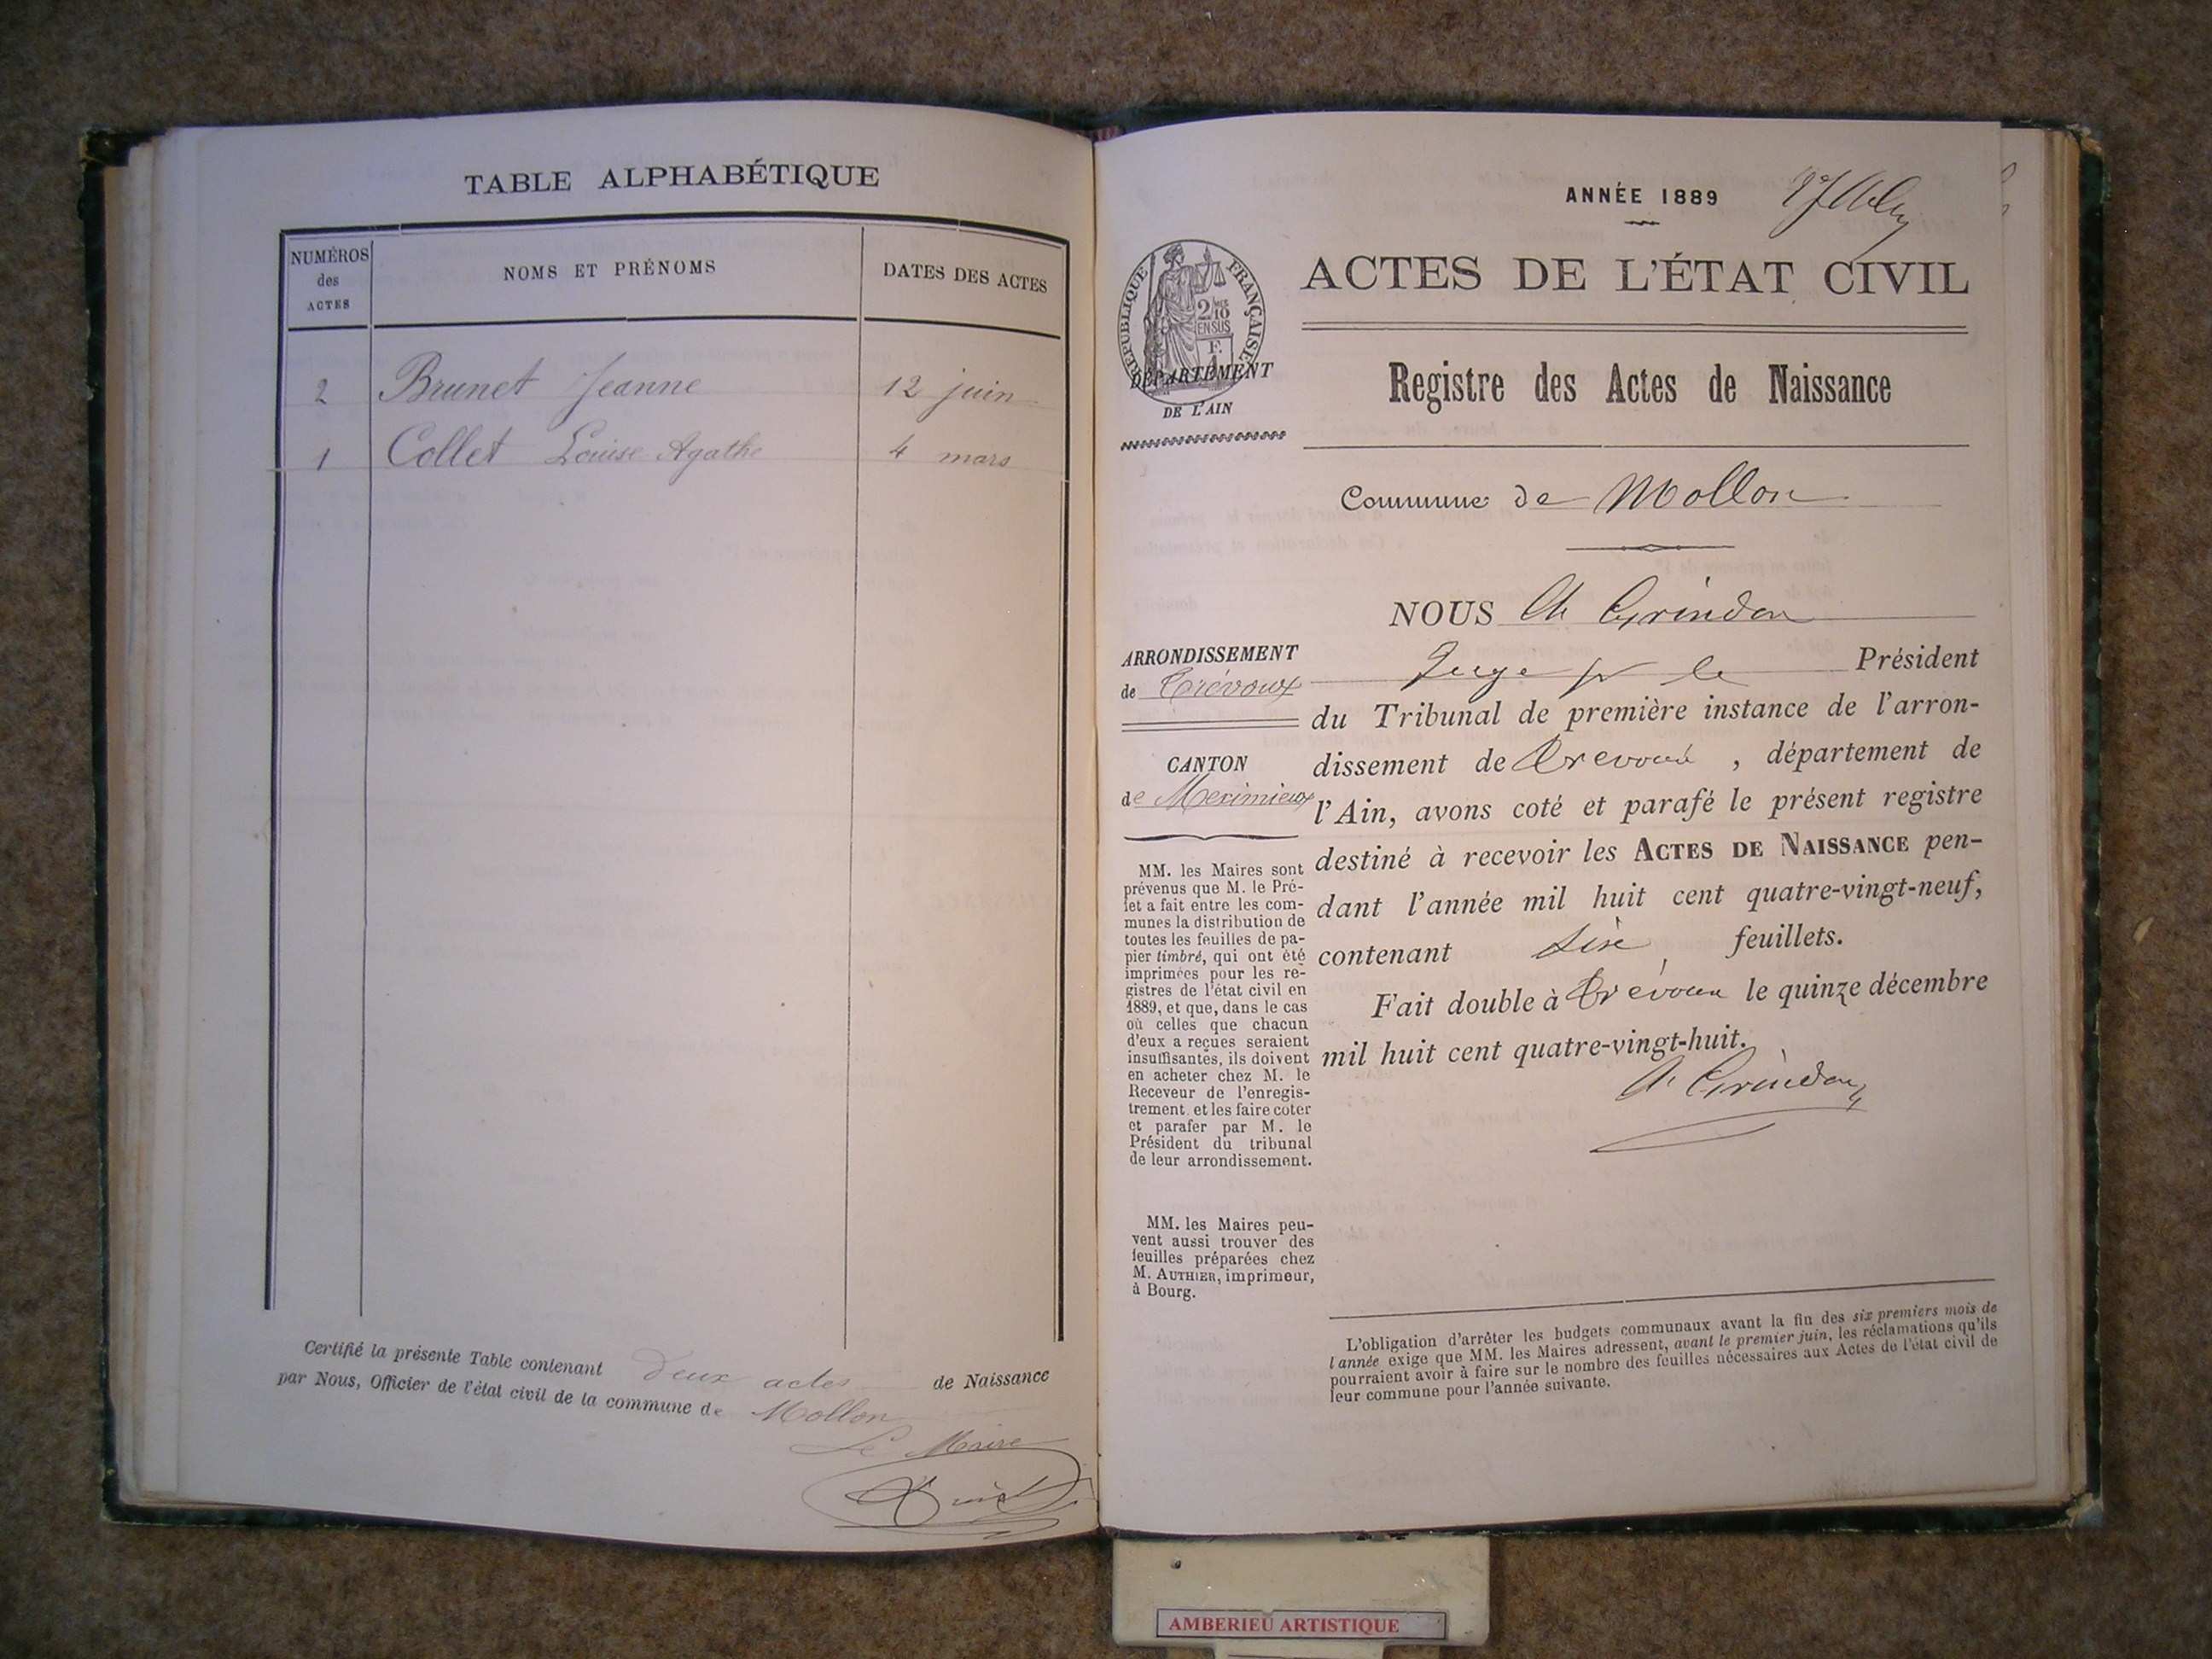 TABLE ALPHABÉTIQUE
NUMÉROS
des
ACTES
NOMS ET PRÉNOMS
DATES DES ACTES
2 Brunet Jeanne 12 juin
1 Collet Louise Agathe 4 mars
Certifié la présente Table contenant deux actes de Naissance
par Nous, Officier de l'état civil de la commune de Mollon
Le Maire
ANNÉE 1889
RÉPUBLIQUE FRANÇAISE
2/10
EN SUS
F.
DÉPARTEMENT
DE L'AIN
ACTES DE L'ÉTAT CIVIL
Registre des Actes de Naissance
Commune de Mollon
ARRONDISSEMENT
de Trévoux
CANTON
de Meximieux
MM. les Maires sont
prévenus que M. le Pré-
fet a fait entre les com-
munes la distribution de
toutes les feuilles de pa-
pier timbré, qui ont été
imprimées pour les re-
gistres de l'état civil en
1889, et que, dans le cas
où celles que chacun
d'eux a reçues seraient
insuffisantes, ils doivent
en acheter chez M. le
Receveur de l'enregis-
trement et les faire coter
et parafer par M. le
Président du tribunal
de leur arrondissement.
MM. les Maires peu-
vent aussi trouver des
feuilles préparées chez
M. AUTHIER, imprimeur,
à Bourg.
NOUS Ch Grindon
Juge pr le Président
du Tribunal de première instance de l'arron-
dissement de Trevoux, département de
l'Ain, avons coté et parafé le présent registre
destiné à recevoir les ACTES DE NAISSANCE pen-
dant l'année mil huit cent quatre-vingt-neuf,
contenant six, feuillets.
Fait double à Trévoux le quinze décembre
mil huit cent quatre-vingt-huit.
Ch Grindon
L'obligation d'arrêter les budgets communaux avant la fin des six premiers mois de
l'année exige que MM. les Maires adressent, avant le premier juin, les réclamations qu'ils
pourraient avoir à faire sur le nombre des feuilles nécessaires aux Actes de l'état civil de
leur commune pour l'année suivante.
AMBERIEU ARTISTIQUE